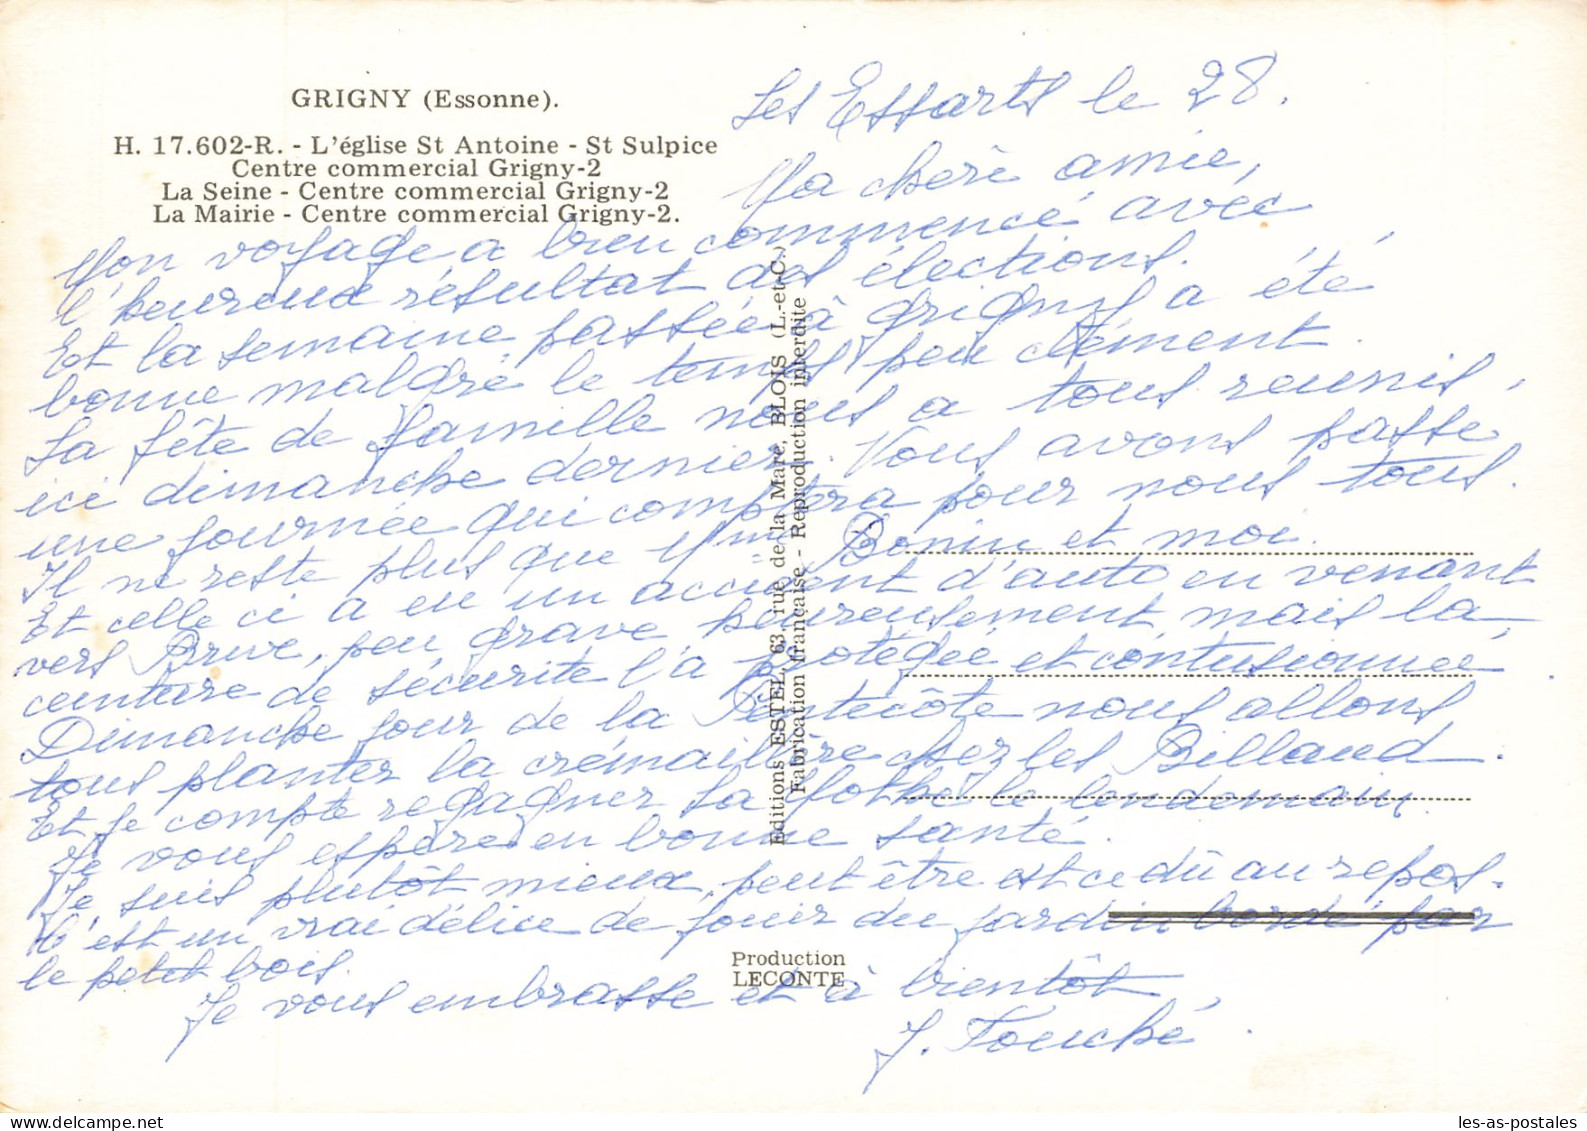 GRIGNY (Essonne).
H. 17.602-R. - L'église St Antoine - St Sulpice
Centre commercial Grigny-2
La Seine - Centre commercial Grigny-2
La Mairie - Centre commercial Grigny-2.
Les Essarts le 28.
Ma chère amie,
Mon voyage a bien commencé avec
l'heureux résultat des élections.
Et la semaine passée à Grigny a été
bonne malgré le temps peu clément.
La fête de famille nous a tous reunis,
ici dimanche dernier. Nous avons passé
une journée qui comptera pour nous tous.
Il ne reste plus que Mme Bonin et moi.
Et celle ci a eu un accident d'auto en venant
vers Brive, peu grave heureusement mais la
ceinture de sécurité l'a protégée et contusionnée
Dimanche jour de la Pentecôte nous allons
tous planter la crémaillère chez les Billaud.
Et je compte regagner La Mothe le lendemain.
Je vous espère en bonne santé.
Je suis plutôt mieux, peut être est ce dû au repos.
C'est un vrai délice de jouir du jardin bordé par
le petit bois.
Je vous embrasse et à bientôt,
J. Fouché.
Editions ESTEL, 63, rue de la Mare, BLOIS (L.-et-C.)
Fabrication française - Reproduction interdite
Production
LECONTE
les-as-postales
delcampe.net